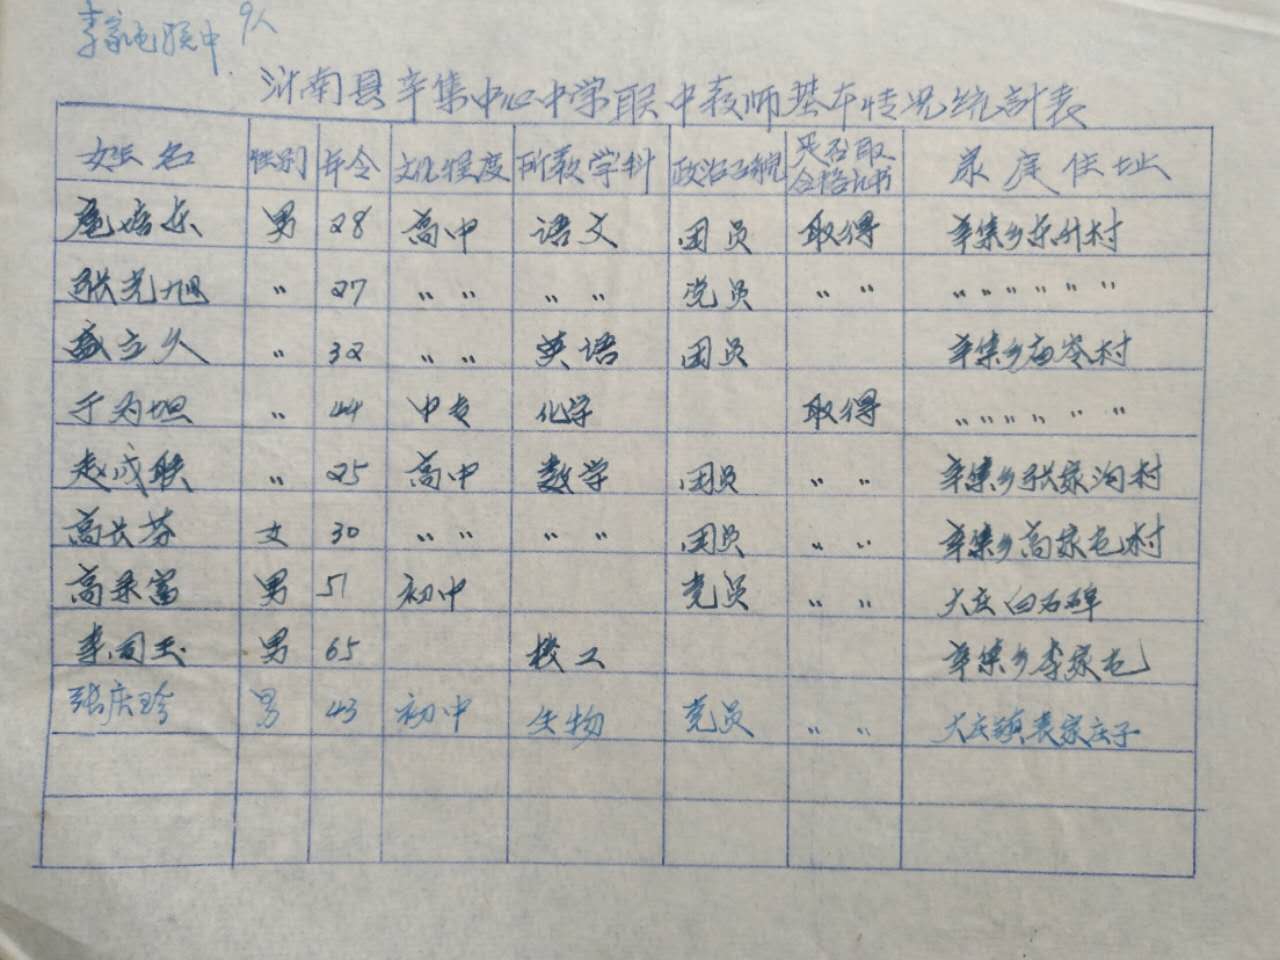 李家屯联中 9人
沂南县辛集中心中学联中教师基本情况统計表
姓名 性别 年令 文化程度 所教学科 政治面貌 是否取合格证书 家庭住址
男 28 高中 语文 团员 取得 辛集乡东村
张光旭 〃 27 〃 〃 〃 〃 党员 〃 〃 〃 〃 〃 〃 〃 〃
盛立久 〃 32 〃 〃 英语 团员 辛集乡庙岺村
于为坦 〃 44 中专 化学 取得 〃 〃 〃 〃 〃 〃
赵成联 〃 25 高中 数学 团员 〃 〃 辛集乡张家沟村
高长芬 女 30 〃 〃 〃 〃 团员 〃 〃 辛集乡高家屯村
高秉富 男 51 初中 党员 〃 〃 大庄白石碑
李同玉 男 65 校工 辛集乡李家屯
张庆珍 男 43 初中 生物 党员 〃 〃 大庄镇袁家庄子